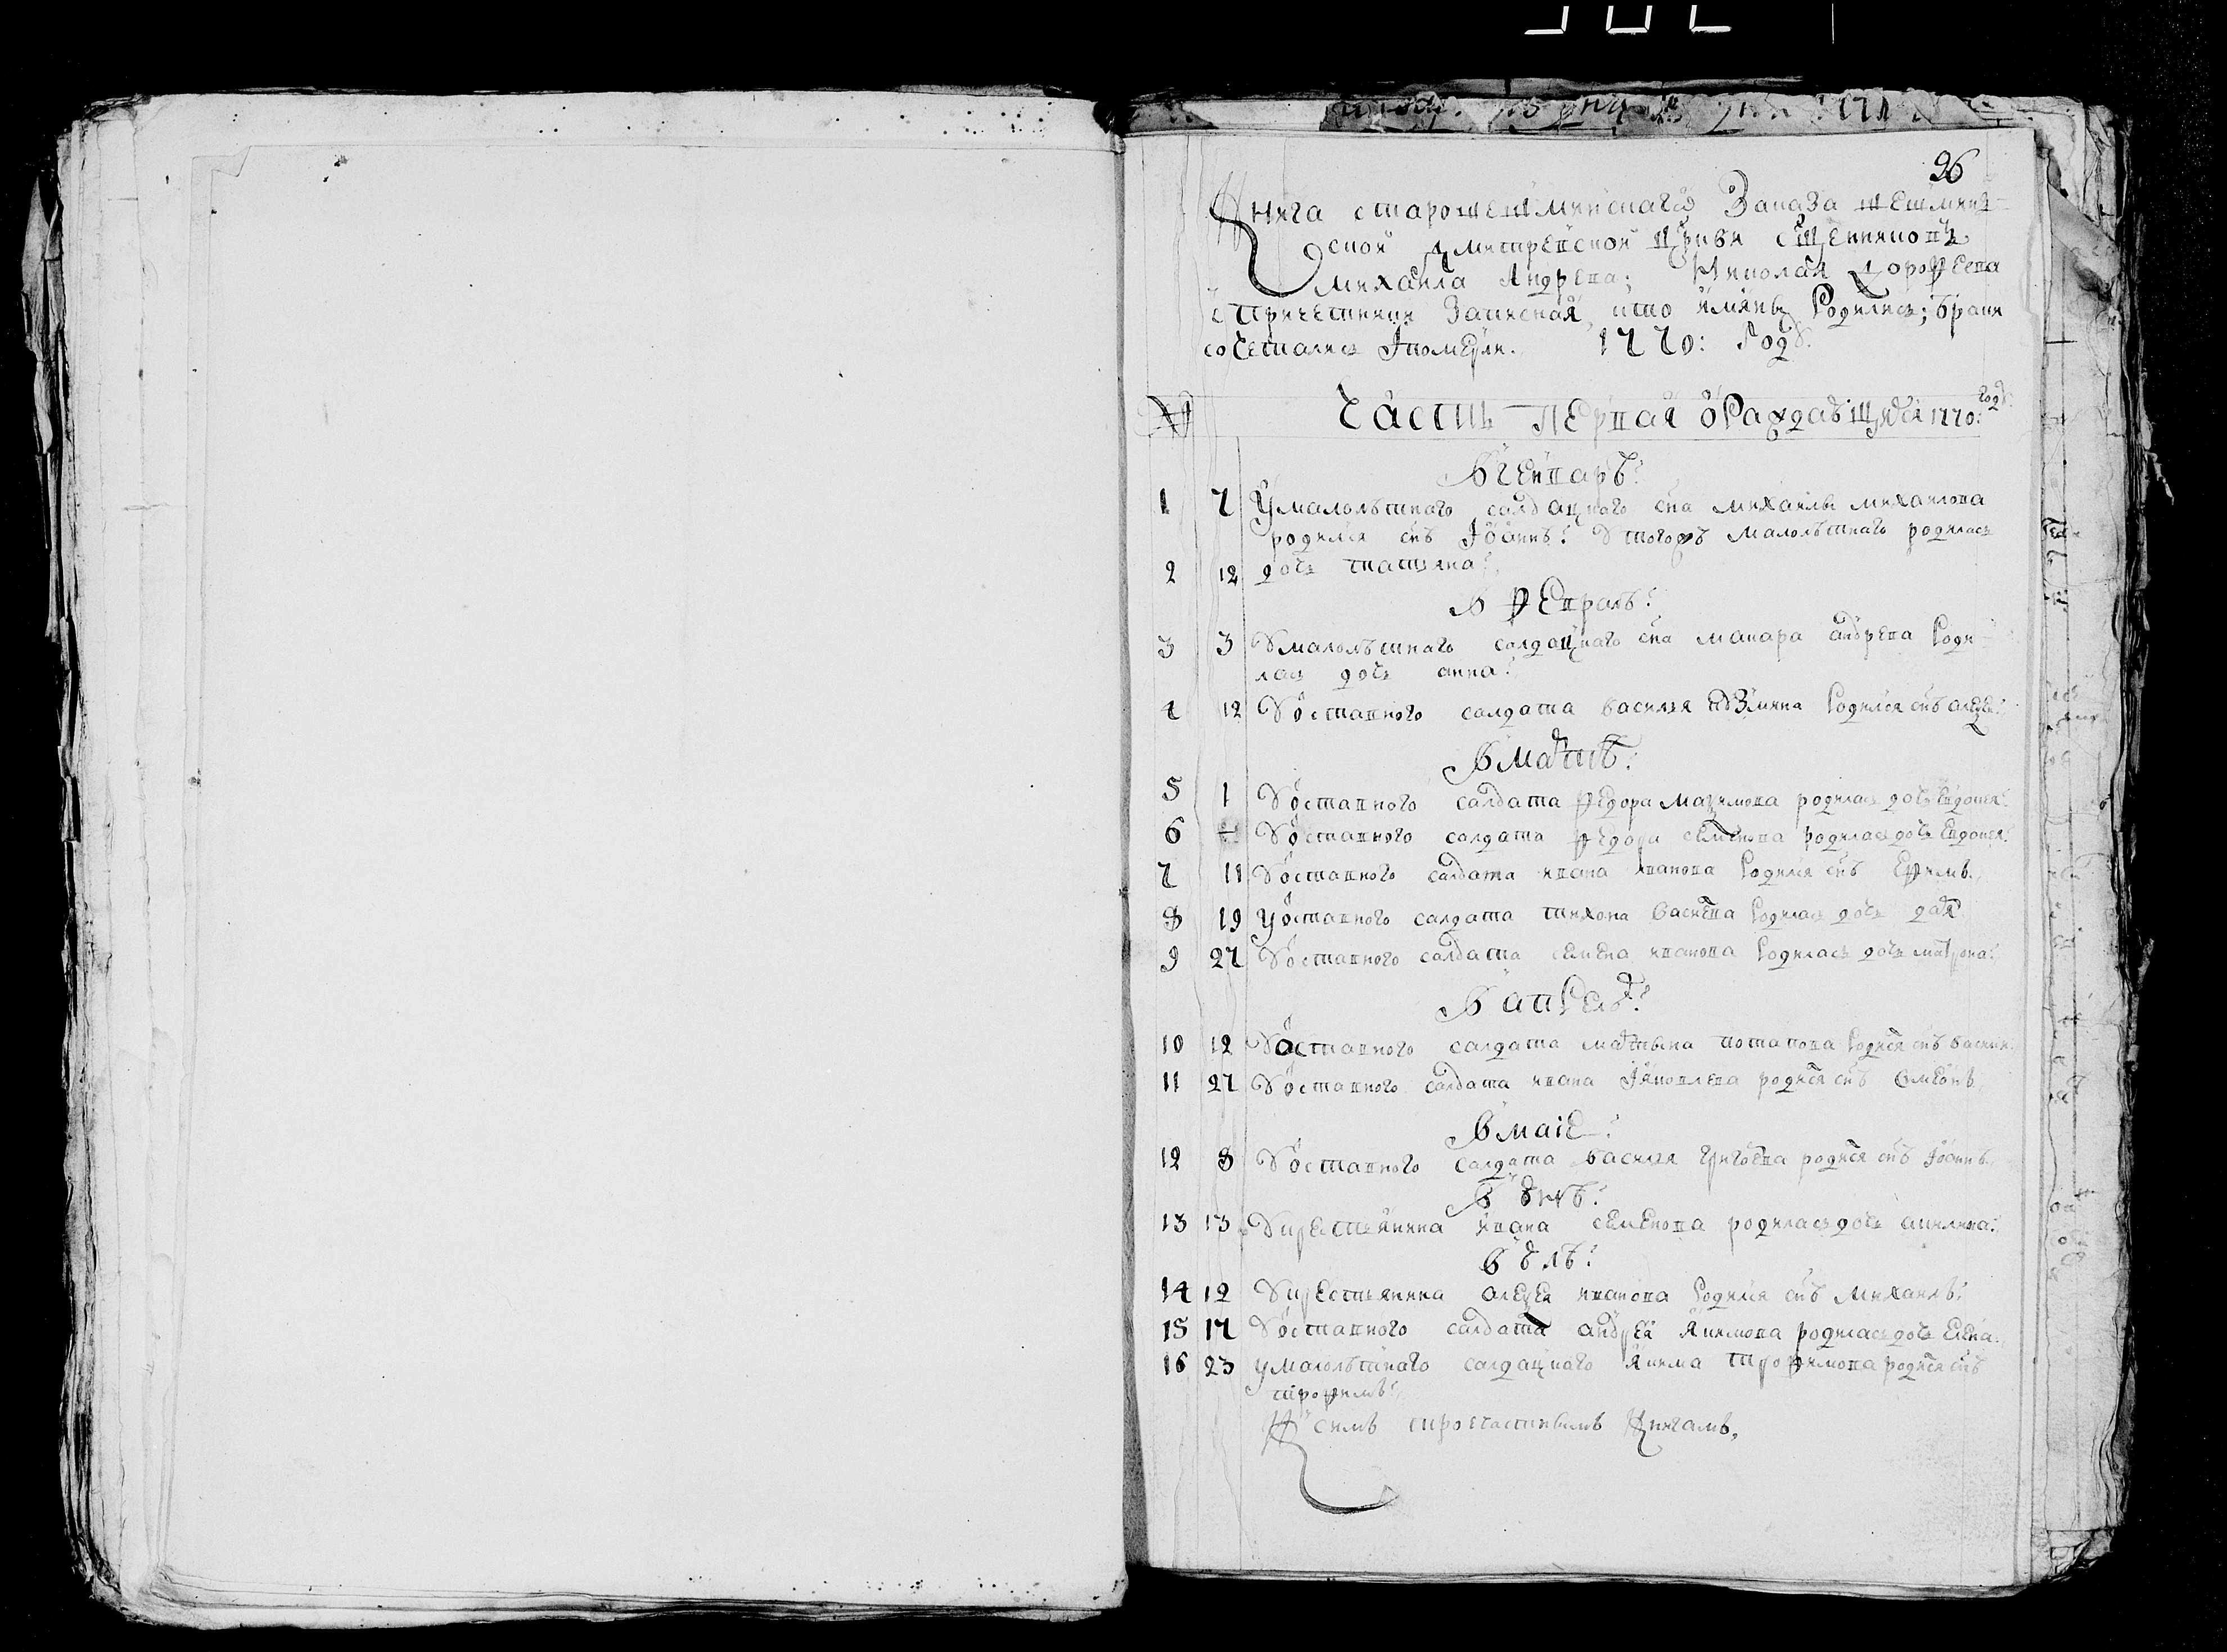 96
Книга старошешминскаго Заказа шешмин-
ской Дмитревской цркви сщенниковъ
михаила Андрева; Николая Дорофеева
с причетники Записная, кто имяны Родились; браки
сочетались Iпомерли. 1770: Году.
№ Часть первая о Раждающихся 1770: году.
Вгенваръ:
1 7 Умалолѣтнаго салдацкаго сна михаилы михаилова
родился снъ Iоаннъ: Утогожъ малолѣтнаго родилась
2 12 дочь татьяна:
В февралѣ:
3 3 Умалолѣтнаго салдацкаго сна макара андрева Роди-
лась дочь анна:
4 12 Уоставного салдата василья Родился снъ алеѯей:
Вмартѣ:
5 1 Уоставного салдата федора маѯимова родилась дочь Евдокея:
6 — Уоставного салдата федора семенова родилась дочь Евдокея:
7 11 Уоставного салдата ивана иванова Родился снъ Ефимъ.
8 19 Уоставного салдата тихона васильева Родилась дочь даря
9 27 Уоставного салдата семена иванова Родилась дочь матрона:
В апрелѣ:
10 12 Уоставного салдата мартына потапова Родился снъ василий:
11 27 Уоставного салдата ивана Iяковлева родился снъ Симеонъ.
Вмаiе:
12 8 Уоставного салдата василья григорева родился снъ Iоаннъ.
В юнѣ:
13 13 Укрестьянина ивана семенова родилась дочь акилина:
В юлѣ:
14 12 Укрестьянина алеѯея иванова Родился снъ михаилъ:
15 17 Уоставного салдата андрея якимова родилась дочь Елена:
16 23 Умалолѣтнаго салдацкаго якима трофимова родился снъ
трофимъ:
К симъ троечастнымъ Книгамъ,